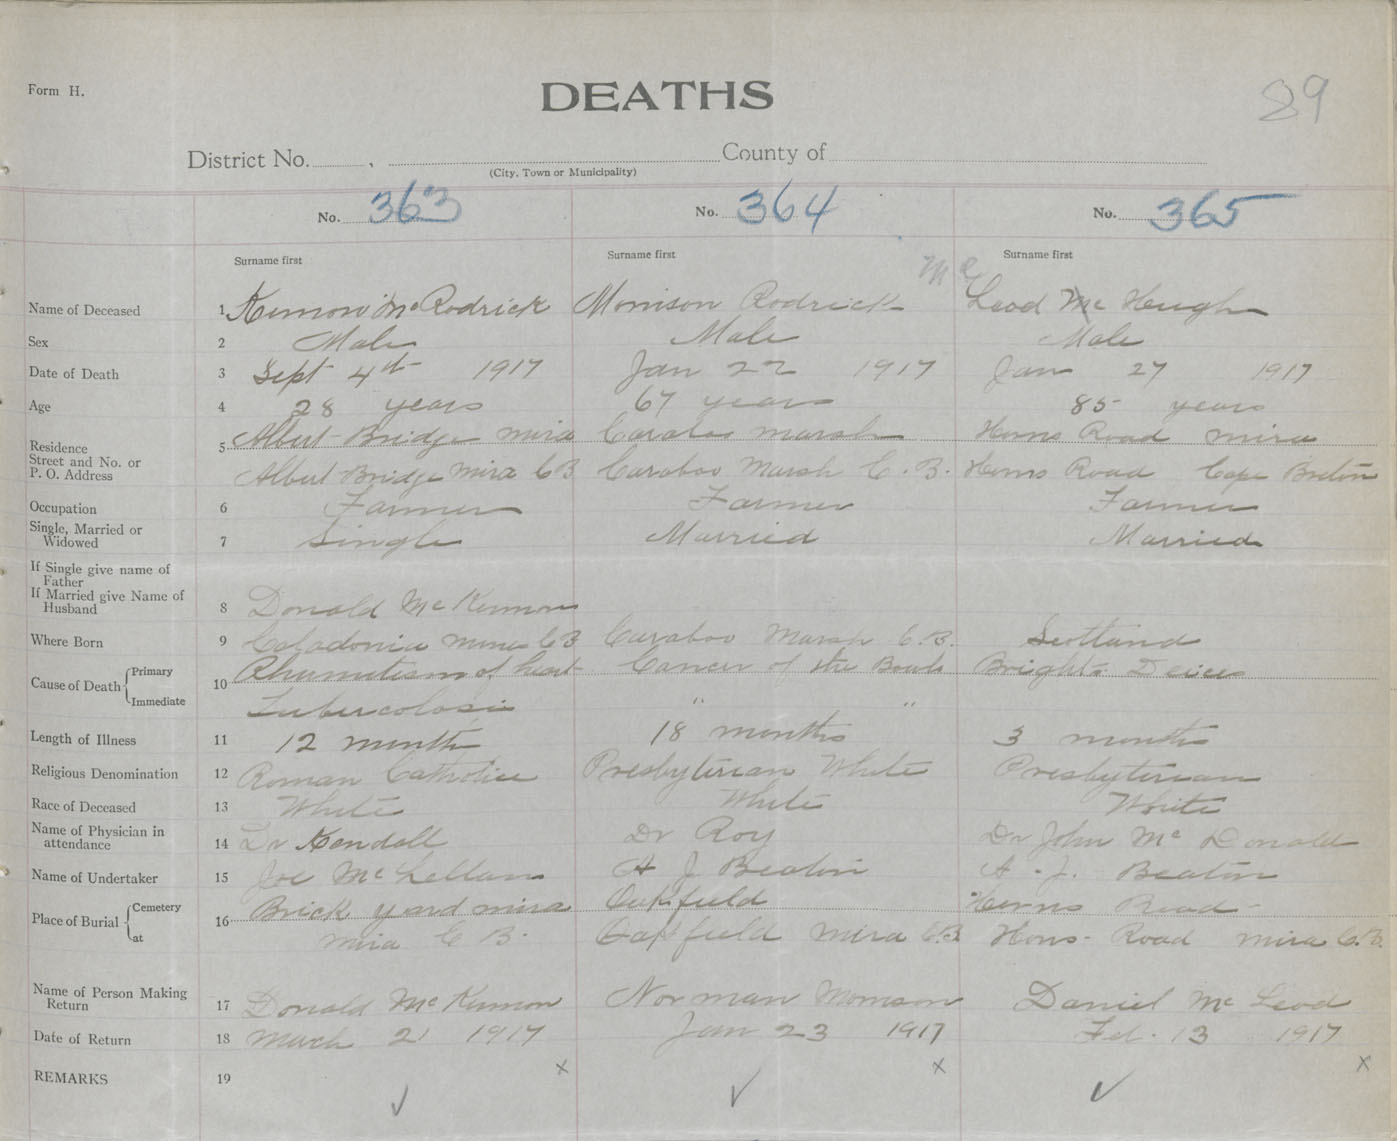 89
Form H.
DEATHS
District No. , County of
(City, Town or Municipality)
No. 363 No. 364 No. 365
Surname first Surname first Surname first
Mc
Name of Deceased 1 Kinnon Mc Rodrick Morrison Rodrick Leod Mc Heugh
Sex 2 Male Male Male
Date of Death 3 Sept 4th 1917 Jan 22 1917 Jan 27 1917
Age 4 28 years 67 years 85 years
Residence 5 Albert Bridge mira Caraboo marsh Horns Road mira
Street and No. or
P. O. Address Albert Bridge Mira C B Caraboo Marsh C. B. Horns Road Cape Breton
Occupation 6 Farmer Farmer Farmer
Single, Married or
Widowed 7 Single Married Married
If Single give name of
Father
If Married give Name of
Husband 8 Donald Mc Kinnon
Where Born 9 Caladonia mines C B Caraboo Marsh C. B. Scotland
Cause of Death Primary 10 Rhumitism of heart Cancer of the Bowls Brights
Immediate Tubercolosis " "
Length of Illness 11 12 months 18 months 3 months
Religious Denomination 12 Roman Catholice Presbyterian White Presbyterian
Race of Deceased 13 White White White
Name of Physician in
attendance 14 Dr Kendall Dr Roy Dr John Mc Donald
Name of Undertaker 15 Joe McLellan A J Beaton A. J. Beaton
Place of Burial Cemetery 16 Brick yard mira Oakfield Horns Road
at mira C B. Oakfield Mira C.B. Horns Road mira C.B.
Name of Person Making
Return 17 Donald Mc Kinnon Norman Morrison Daniel Mc Leod
Date of Return 18 March 21 1917 Jan 23 1917 Feb. 13 1917
REMARKS 19 x x x